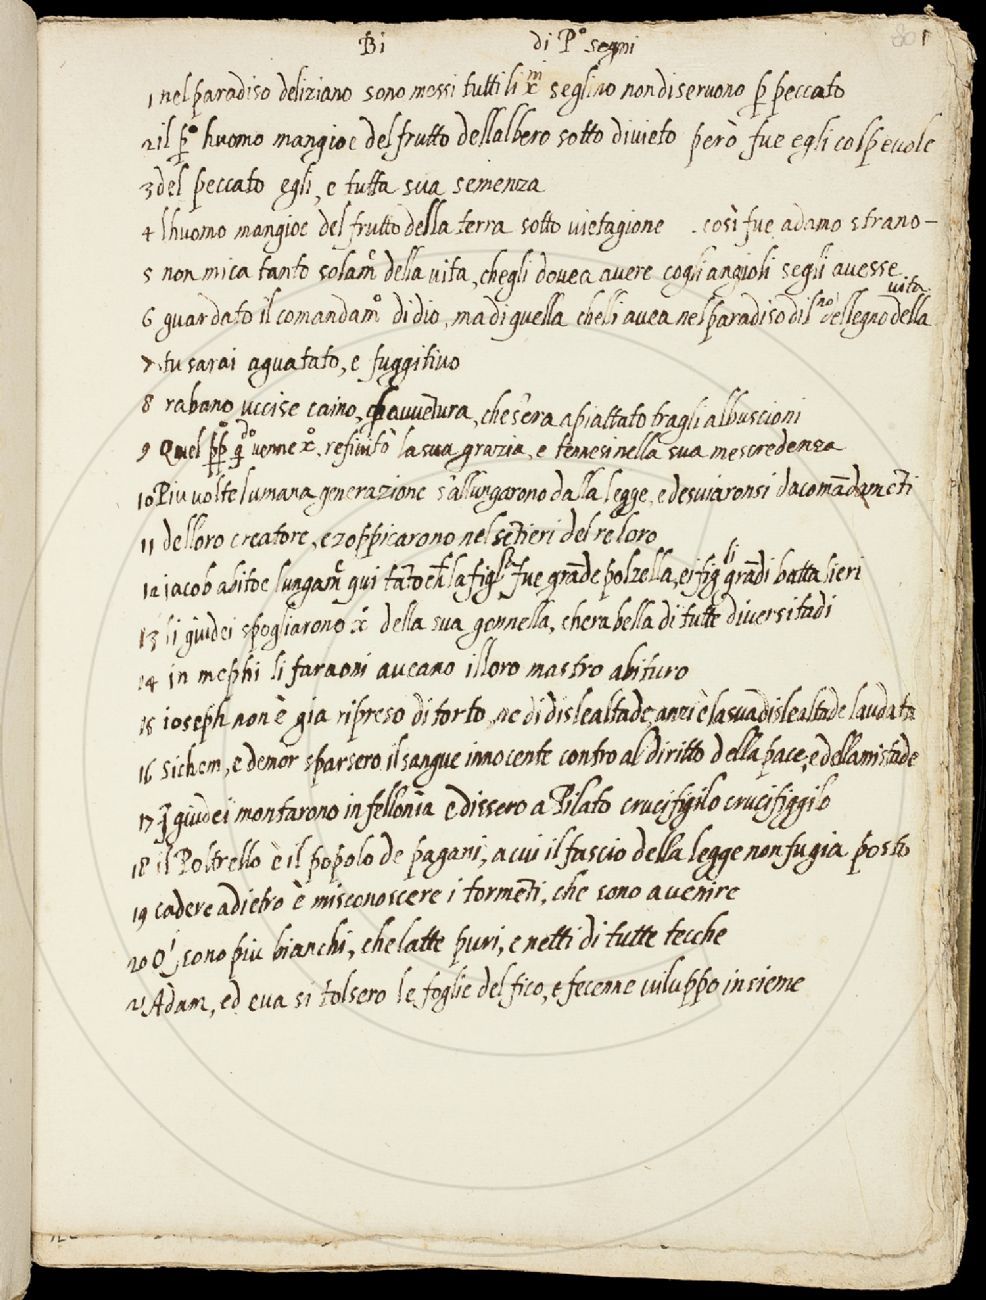 Bi di Pº segni 1
1 nel paradiso deliziano sono messi tutti li x̄ni segli no non diseruono p̱ peccato
2 il pº huomo mangioe del frutto dellalbero sotto diuieto però fue egli colpeuole
3 del peccato egli, e tutta sua semenza
4 lhuomo mangioe del frutto della terra sotto uietagione . così fue adamo strano-
5 non mica tanto solamᵉ̃ della uita, chegli douea auere cogli angioli segli auesse
6 guardato il comandamº di dio, ma di quella chelli auea nel paradiso dellegno della uita
7 tu sarai aguatato, e fuggitiuo
8 rabano uccise caino, auuẽtura, che sera apiattato tragli albuscioni
9 Quel uenne xº, refiutò la sua grazia, e tennesi nella sua mescredenza
10 Piu uolte lumana generazione s'allungarono dalla legge, e desuiaronsi da comãdamẽti
11 delloro creatore, e zoppicarono nel sẽtieri del re loro
12 iacob abitoe lungamᵉ̃ qui tãto fue grãde polzella, ei figˡⁱ grãdi battalieri
13 li giudei spogliarono x̄ della sua gonnella, chera bella di tutte diuersitadi
14 in mephi li faraoni aueano illoro mastro abituro
15 ioseph non è gia ripreso di torto, ne di dislealtade, anzi è la sua dislealtade laudata
16 Sichem, e demor sparsero il sangue innocente contro al diritto della pace, e dellamistade
17 giudei montarono in fellonia e dissero a Pilato crucifigilo crucifiggilo
18 il Poltrello è il popolo de pagani, a cui il fascio della legge non fu gia posto
19 cadere adietro è misconoscere i tormẽti, che sono auenire
20 sono piu bianchi, che latte puri, e netti di tutte tecche
21 Adam, ed eua si tolsero le foglie del fico, e fecenne uiluppo insieme